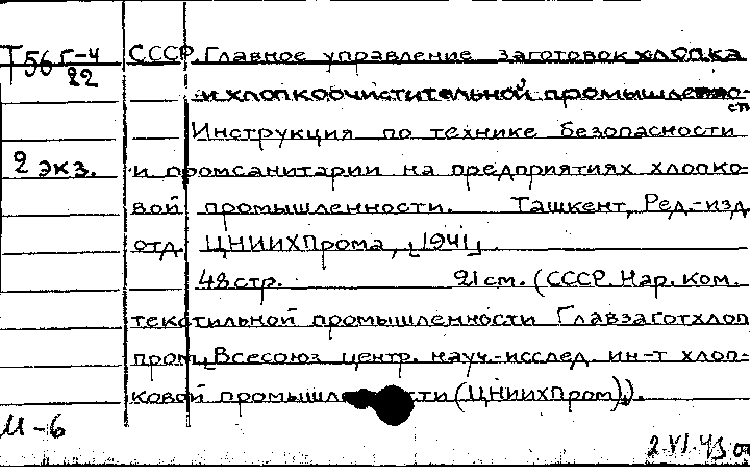 Т56 Г-4 СССР. Главное управление заготовок хлопка
22
и хлопкоочистительной промышленно-
сти
Инструкция по технике безопасности
2 экз. и промсанитарии на предприятиях хлопко-
вой промышленности. Ташкент, Ред.-изд.
отд. ЦНИИХПрома, [1941]
48 стр. 21 см. (СССР. Нар. ком.
текстильной промышленности Главзаготхлоп
пром, Всесоюз центр. науч.-исслед. ин-т хлоп-
ковой (ЦНИИХПром)).
И-6
2.VI.43